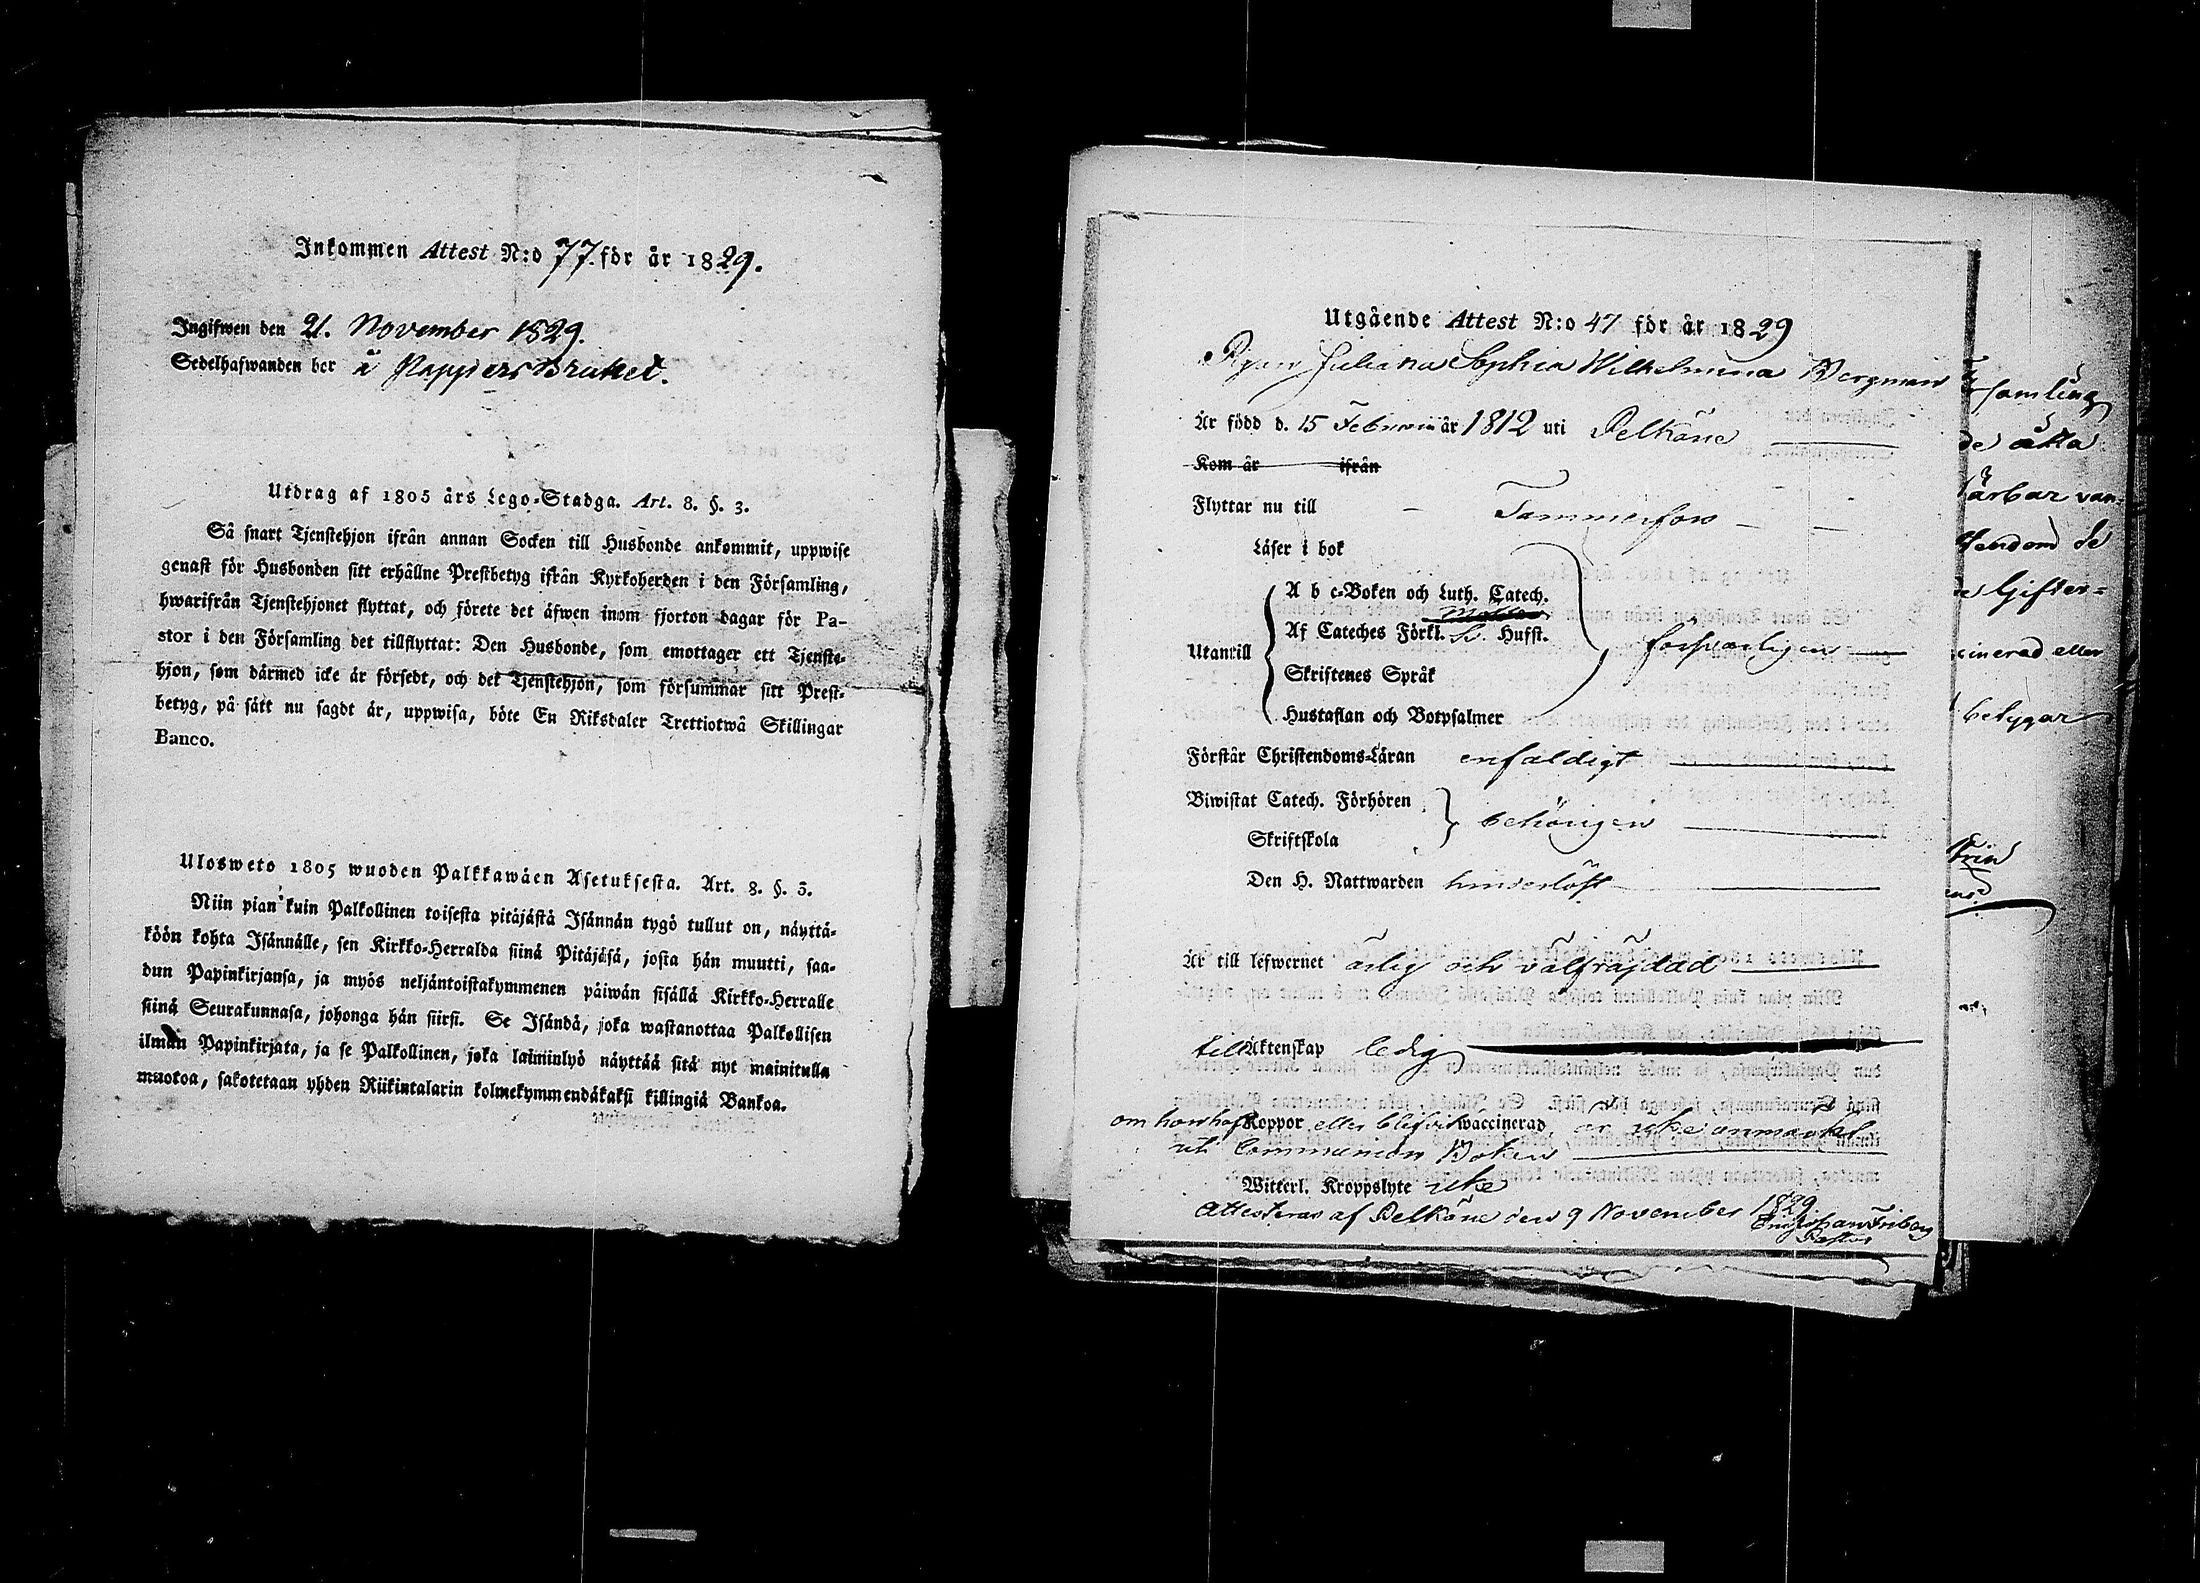 Inkommen Attest N:o 77. för år 1829.
Ingifwen den 21. November 1829.
Sedelhafwanden bor å Pappersbruket.
Utdrag af 1805 års Lego-Stadga. Art. 8. §. 3.
Så snart Tjenstehjon ifrån annan Socken till Husbonde ankommit, uppwise
genast för Husbonden sitt erhållne Prestbetyg ifrån Kyrkoherden i den Församling,
hwarifrån Tjenstehjonet flyttat, och förete det äfwen inom fjorton dagar för Pa-
stor i den Församling det tillflyttat: Den Husbonde, som emottager ett Tjenste-
hjon, som därmed icke är försedt, och det Tjenstehjon, som försummar sitt Prest-
betyg, på sätt nu sagdt är, uppwisa, böte En Riksdaler Trettiotwå Skillingar
Banco.
Ulosweto 1805 wuoden Palkkawäen Asetuksesta. Art. 8. §. 3.
Niin pian kuin Palkollinen toisesta pitäjästä Isännän tygö tullut on, näyttä-
köön kohta Isännälle, sen Kirkko-Herralda siinä Pitäjäsä, josta hän muutti, saa-
dun Papinkirjansa, ja myös neljäntoistakymmenen päiwän sisällä Kirkko-Herralle
siinä Seurakunnasa, johonga hän siirsi. Se Isändä, joka wastanottaa Palkollisen
ilman Papinkirjata, ja se Palkollinen, joka laiminlyö näyttää sitä nyt mainitulla
muotoa, sakotetaan yhden Riikintalarin kolmekymmendäkaksi killingiä Bankoa.
Utgående Attest N:o 47 för år 1829
Pigan Juliana Sophia Wilhelmina Bergman
Är född d. 15 Februarii år 1812 uti Pelkäne
Kom år ifrån
Flyttar nu till Tammerfors
Läser i bok
A b c-Boken och Luth. Catech.
Af Cateches Förkl. Sv. Hufst.
Utantill försvarligen
Skriftenes Språk
Hustaflan och Botpsalmer
Förstår Christendoms-Läran enfaldigt
Biwistat Catech. Förhören
behörigen
Skriftskola
Den H. Nattwarden hinderlöst
Är till lefwernet ärlig och välfräjdad
till Äktenskap ledig
om hon haft Koppor eller blifvit waccinerad är icke anmärkt
uti Communion Boken
Witterl. Kroppslyte icke
Attesteras af Pelkäne den 9 November 1829
Johan Friberg
Pastor
samling
de åtta
ärbar van-
stendom de
Gifter-
cinerad eller
betygar